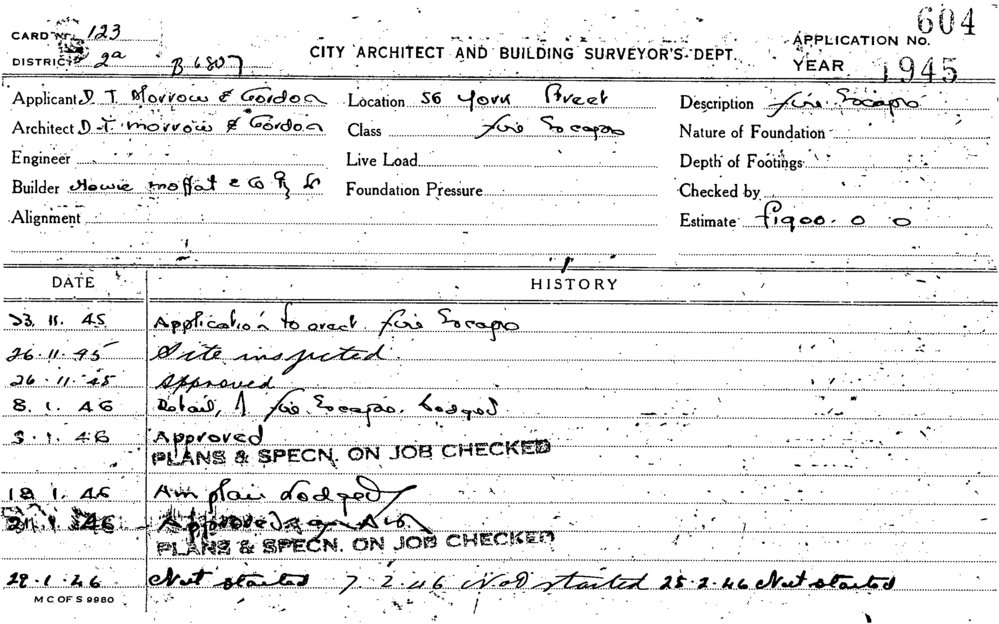 CARD No. 123
DISTRICT 2a B6807
CITY ARCHITECT AND BUILDING SURVEYOR'S DEPT.
APPLICATION No. 604
YEAR 1945
Applicant D. T. Morrow & Gordon Location 56 York Street Description fire Escape
Architect D. T. Morrow & Gordon Class fire Escape Nature of Foundation
Engineer Live Load Depth of Footings
Builder Howie Moffat & Co Foundation Pressure Checked by
Alignment Estimate £1900. 0 0
DATE HISTORY
23. 11. 45 Application to erect fire Escape
26. 11. 45 Site inspected
26. 11. 45 Approved
8. 1. 46 Detail of fire Escape Lodged
1. 46 Approved
PLANS & SPECN. ON JOB CHECKED
18 1. 46 Am plan Lodged
1 46 Approved
PLANS & SPECN. ON JOB CHECKED
29. 1. 46 Not started 7. 2. 46 Not started 25. 2. 46 Not started
M C OF S 9980